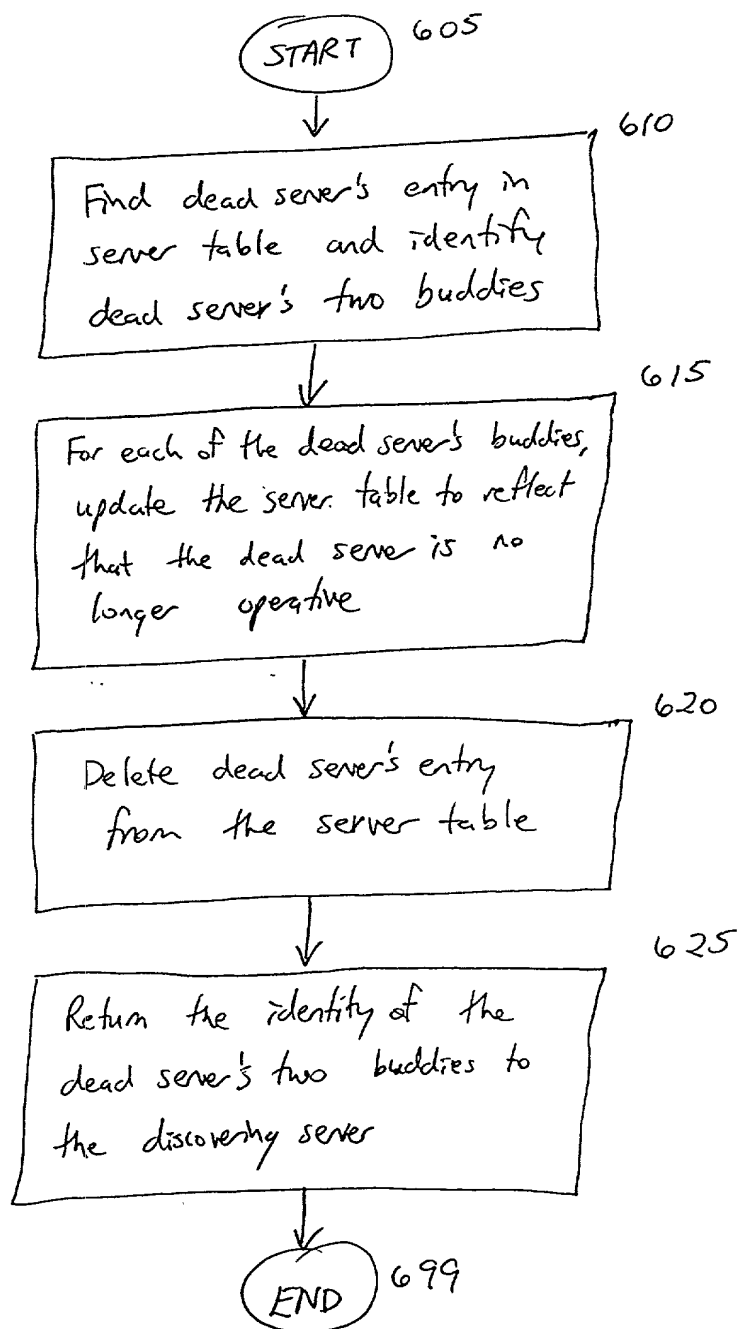 START 605
610
Find dead server's entry in
server table and identify
dead server's two buddies
615
For each of the dead server's buddies,
update the server table to reflect
that the dead server is no
longer operative
620
Delete dead server's entry
from the server table
625
Return the identity of the
dead server's two buddies to
the discovering server
END 699